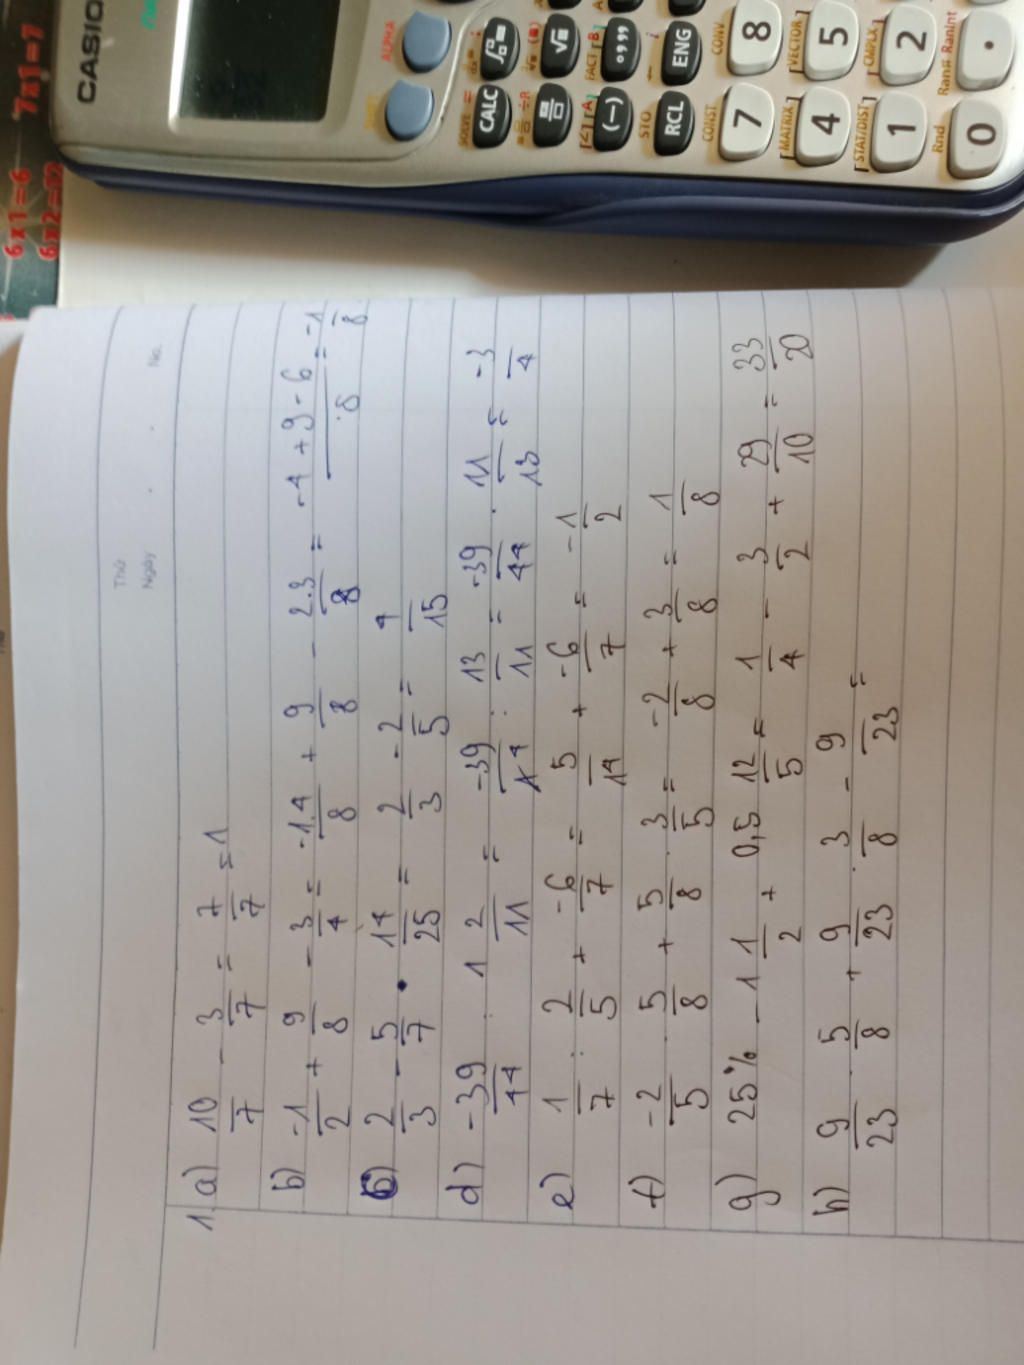 CASIO
ALPHA
SHIFT
SOLVE =
CALC
√■
FACT [B]
[∠] [A]
(-)
° ' ''
STO
RCL
ENG
CONST
CONV
7
8
[MATRIX]
[VECTOR]
4
5
[STAT/DIST]
[CMPLX]
1
2
Rnd
Ran# RanInt
0
.
6x1=6 7x1=7
6x2=12
Thứ
Ngày . . No.
1. a) 10/7 - 3/7 = 7/7 = 1
b) -1/2 + 9/8 - 3/4 = -1.4/8 + 9/8 - 2.3/8 = -4+9-6/8 = -1/8
c) 2/3 - 5/7 . 14/25 = 2/3 - 2/5 = 4/15
d) -39/44 : 1 2/11 = -39/44 : 13/11 = -39/44 . 11/13 = -3/4
e) 1/7 : 2/5 + -6/7 = 5/14 + -6/7 = -1/2
f) -2/5 . 5/8 + 5/8 . 3/5 = -2/8 + 3/8 = 1/8
g) 25% - 1 1/2 + 0,5 12/5 = 1/4 - 3/2 + 29/10 = 33/20
h) 9/23 . 5/8 + 9/23 . 3/8 - 9/23 =